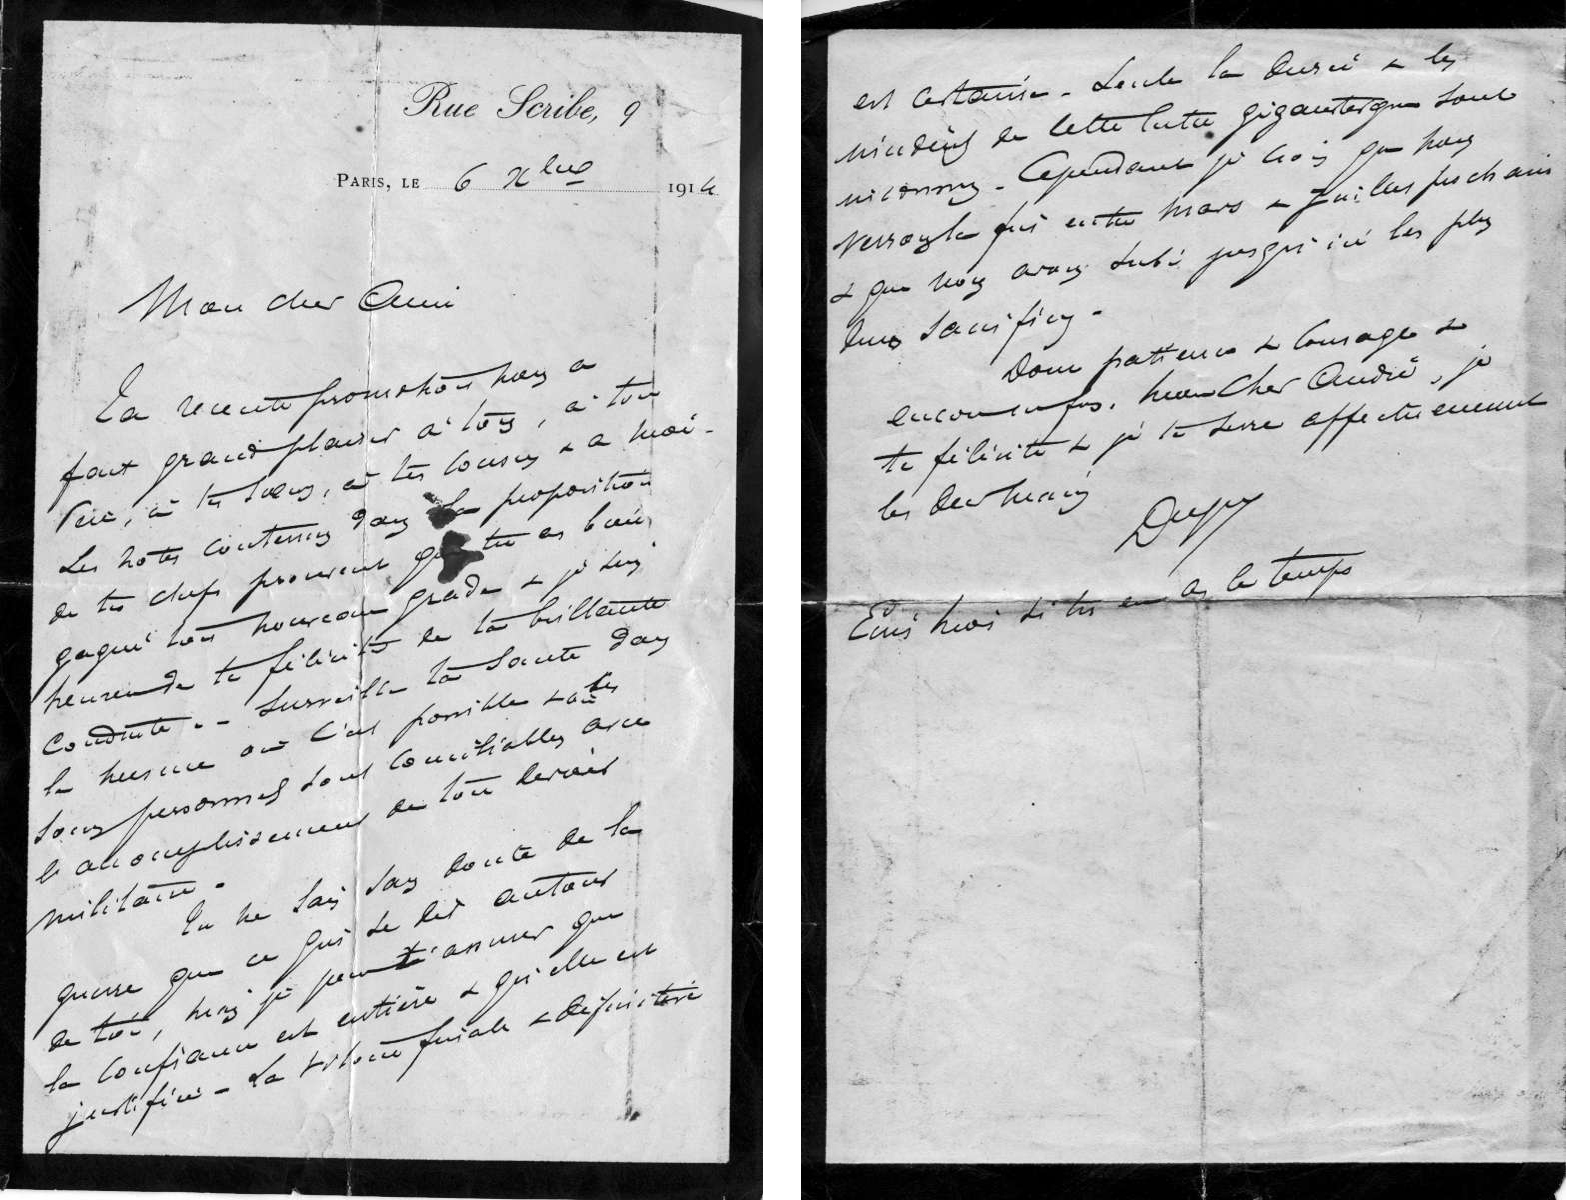 Rue Scribe, 9
PARIS, LE 6 Xbre 1914
Mon cher Ami
Ta récente promotion nous a
fait grand plaisir à tous, à ton
Père, à tes soeurs, à tes cousins & à moi -
Les notes contenues dans la proposition
de tes chefs prouvent que tu as bien
gagné ton nouveau grade & je suis
heureux de te féliciter de ta brillante
conduite. - Surveille ta santé dans
la mesure où c'est possible & où les
soins personnels sont conciliables avec
l'accomplissement de ton devoir
militaire -
Tu ne sais sans doute de la
guerre que ce qui se dit autour
de toi, mais je peux t'assurer que
la confiance est entière & qu'elle est
justifiée - La victoire finale & définitive
est certaine - Seule la durée & les
de cette lutte gigantesque sont
inconnus - Cependant je crois que nous
verrons la fin entre Mars & Juillet prochain
& que nous avons subi jusqu'ici les plus
durs sacrifices -
Donc patience & courage &
encore une fois, mon cher André, je
te félicite & je te serre affectueusement
les deux mains
Ecris moi si tu en as le temps